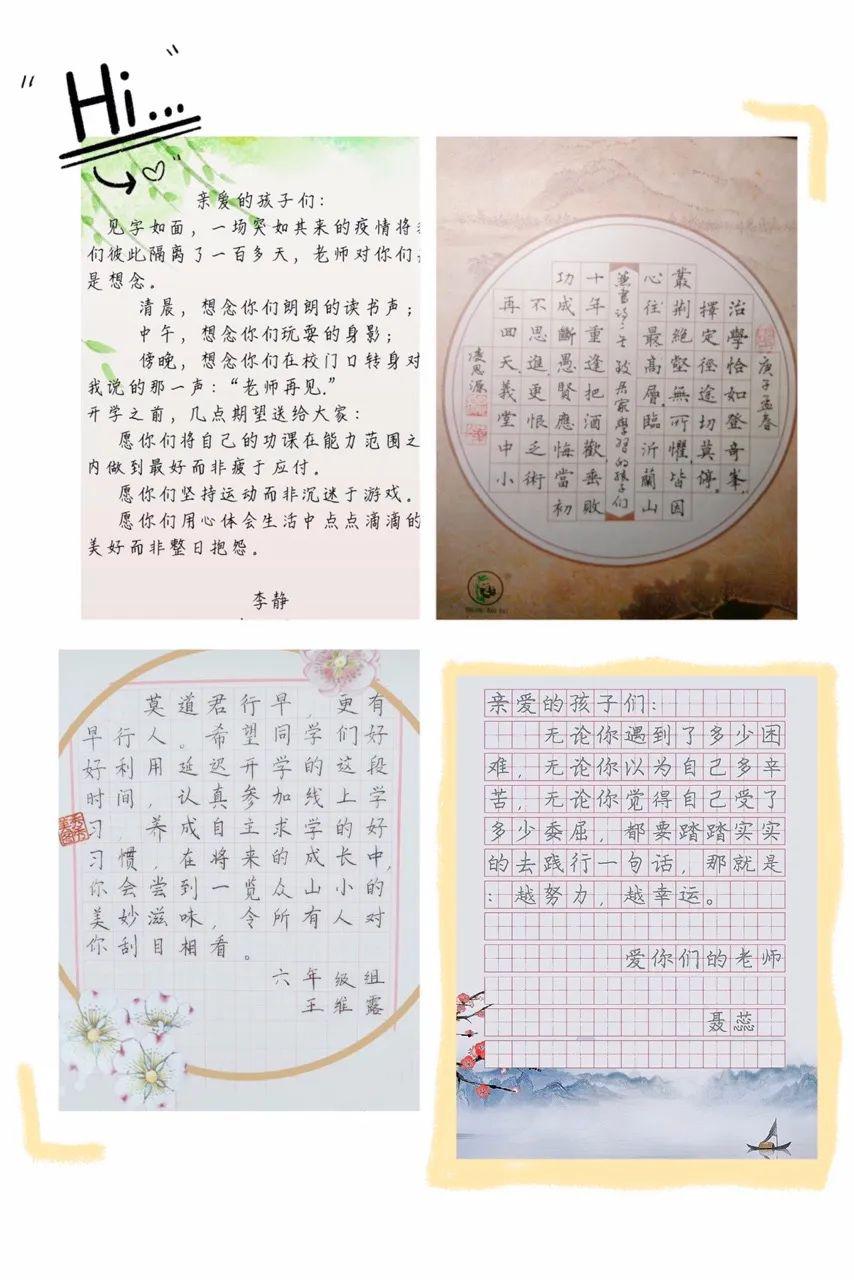 Hi...
亲爱的孩子们：
见字如面，一场突如其来的疫情将
们彼此隔离了一百多天，老师对你们
是想念。
清晨，想念你们朗朗的读书声；
中午，想念你们玩耍的身影；
傍晚，想念你们在校门口转身对
我说的那一声：“老师再见.”
开学之前，几点期望送给大家：
愿你们将自己的功课在能力范围之
内做到最好而非疲于应付。
愿你们坚持运动而非沉迷于游戏。
愿你们用心体会生活中点点滴滴的
美好而非整日抱怨。
李静
庚子孟春
治學恰如登奇峯，
擇定徑途切莫停。
叢荆絕壑無可懼，皆因
心往最高層。臨沂蘭山
致居家學習的孩子們
十年重逢把酒歡垂敗
功成斷愚賢應悔當初
不思進更恨乏術
再回天義堂中小
凌思源
莫道君行早，更有
早行人。希望同学们好
好利用延迟开学的这段
时间，认真参加线上学
习，养成自主求学的好
习惯，在将来的成长中，
你会尝到一览众山小的
美妙滋味，令所有人对
你刮目相看。
六年级组
王维露
亲爱的孩子们：
无论你遇到了多少困
难，无论你以为自己多辛
苦，无论你觉得自己受了
多少委屈，都要踏踏实实
的去践行一句话，那就是
：越努力，越幸运。
爱你们的老师
聂蕊